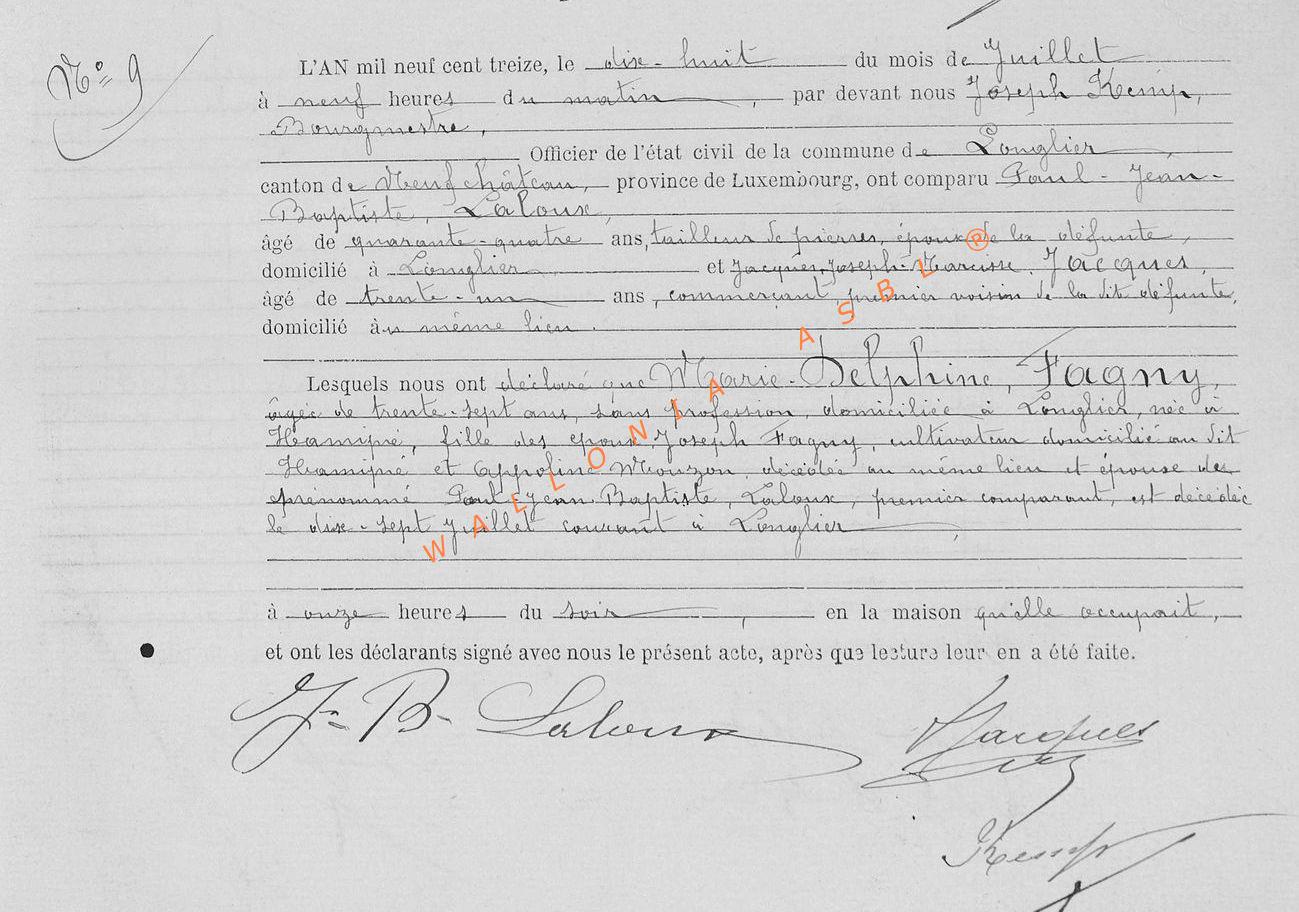 N° 9
L'AN mil neuf cent treize, le dix-huit du mois de Juillet
à neuf heures du matin, par devant nous Joseph Kemp,
Bourgmestre,
Officier de l'état civil de la commune de Longlier,
canton de Neufchâteau, province de Luxembourg, ont comparu Paul-Jean-
Baptiste, Laloux,
âgé de quarante-quatre ans, tailleur de pierres, époux de la défunte,
domicilié à Longlier et Jacques, Joseph-Narcisse, Jacques,
âgé de trente-un ans, commerçant, premier voisin de la dit défunte,
domicilié au même lieu.
Lesquels nous ont déclaré que Marie-Delphine, Fagny,
âgée de trente-sept ans, sans profession, domiciliée à Longlier, née à
Hamipré, fille des époux Joseph Fagny, cultivateur domicilié au dit
Hamipré et Appoline Mouzon, décédée au même lieu et épouse des
prénommé Paul-Jean-Baptiste, Laloux, premier comparant, est décédée
le dix-sept Juillet courant à Longlier,
à onze heures du soir, en la maison qu'elle occupait,
et ont les déclarants signé avec nous le présent acte, après que lecture leur en a été faite.
J-B-Laloux
Jacques
Kemp
WALLONIA ASBL ®